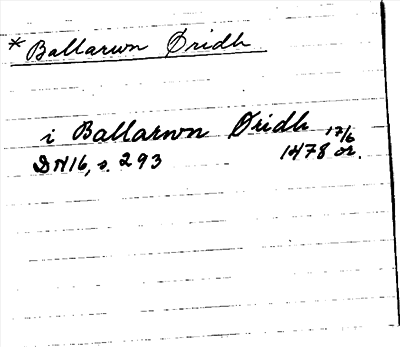 * Ballarwn Øridh
i Ballarwn Øridh 12/6
DN16, s. 293 1478 or.